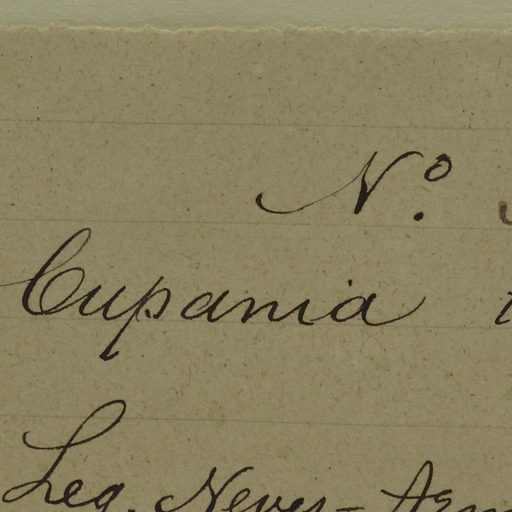 Nº
Cupania
Leg. Neves-Arm